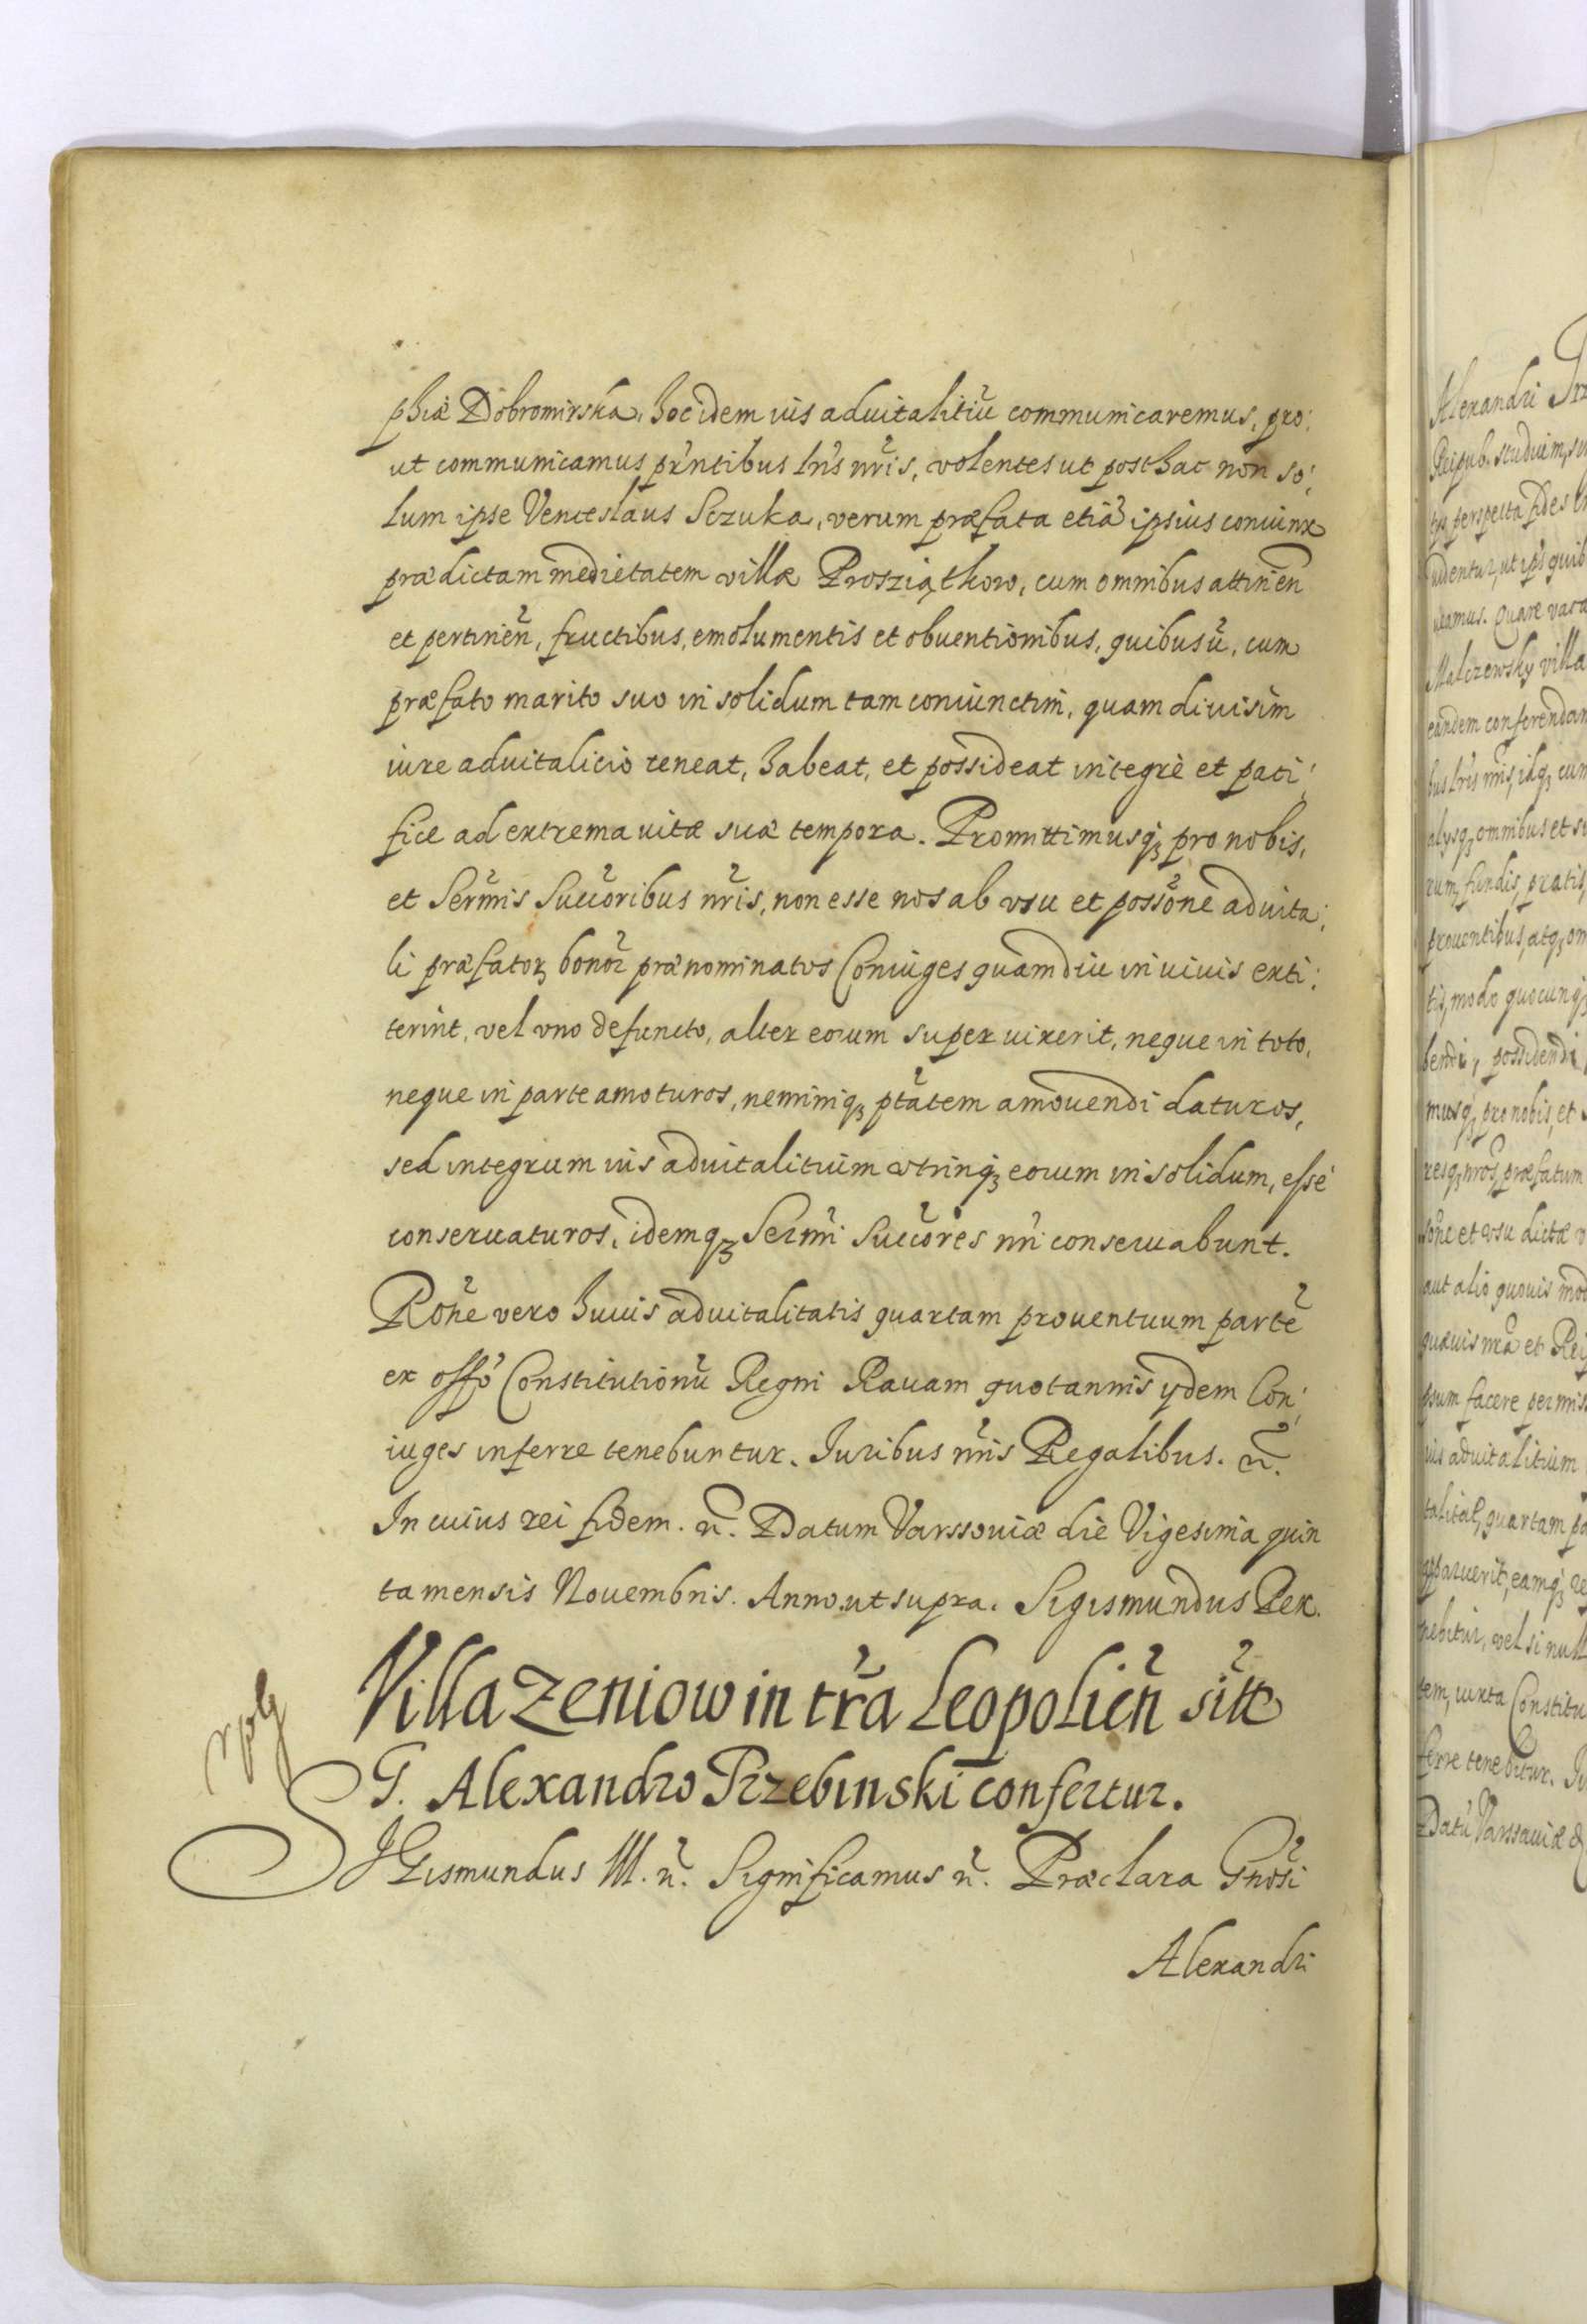 phiæ Dobromirska, hoc idem ius aduitalitiũ communicaremus, pro:
ut communicamus pr̃ntibus lr̃is nr̃is, volentes ut posthac non so:
lum ipse Venceslaus Sczuka, verum præfata etiã ipsius coniunx
prædictam medietatem villæ Prosziąthow, cum omnibus attinen̄
et pertineñ, fructibus, emolumentis et obuentionibus, quibusũ, cum
præfato marito suo in solidum tam coniunctim, quam diuisim
iure aduitalicio teneat, habeat, et possideat integrè et paci:
fice ad extrema uitæ suæ tempora. Promittimusqꝫ pro nobis,
et Serm̃is Succ̃oribus nr̃is, non esse nos ab vsu et possõne aduita:
li præfatoꝝ bonoꝝ prænominatos Coniuges quamdiu in uiuis exti:
terint, vel vno defuncto, alter eorum superuixerit, neque in toto,
neque in parte amoturos, neminiqꝫ ptãtem amouendi daturos,
sed integrum ius aduitalitium utriusqꝫ eorum in solidum, esse
conseruaturos, idemqꝫ Serm̃i Succ̃ores nr̃i conseruabunt.
Rõne vero huius aduitalitatis quartam prouentuum partẽ
ex offõ Constitutionũ Regni Rauam quotannis ydem Con:
iuges inferre tenebuntur. Iuribus nr̃is Regalibus. ñ.
In cuius rei fidem. ñ. Datum Varssouiæ die Vigesima quin
ta mensis Nouembris. Anno ut supra. Sigismundus Rex.
Villa Zeniow in tr̃a Leopolieñ sitt̃
G. Alexandro Trzebinski confertur.
SIGismundus III. ñ. Significamus ñ. Præclara Gñosi
Alexandri
Alexandri
Reipub. studium,
perspecta fides
uamus. Quare
Malczewsky villa
eandem conferendam
bus lr̃is nr̃is, idqꝫ cum
alysqꝫ omnibus et
rum, fundis, pratis,
prouentibus, atqꝫ
tis, modo quocunqꝫ
bendi, possidendi
musqꝫ pro nobis, et
resqꝫ nr̃os præfatum
sõne et vsu dictæ
aut alio quouis
quæuis nr̃a et
psum facere
ius aduitalitium
quartam
apparuerit, eamqꝫ
nebitur, vel si
tem, iuxta
ferre tenebitur.
Datũ Varssauiæ